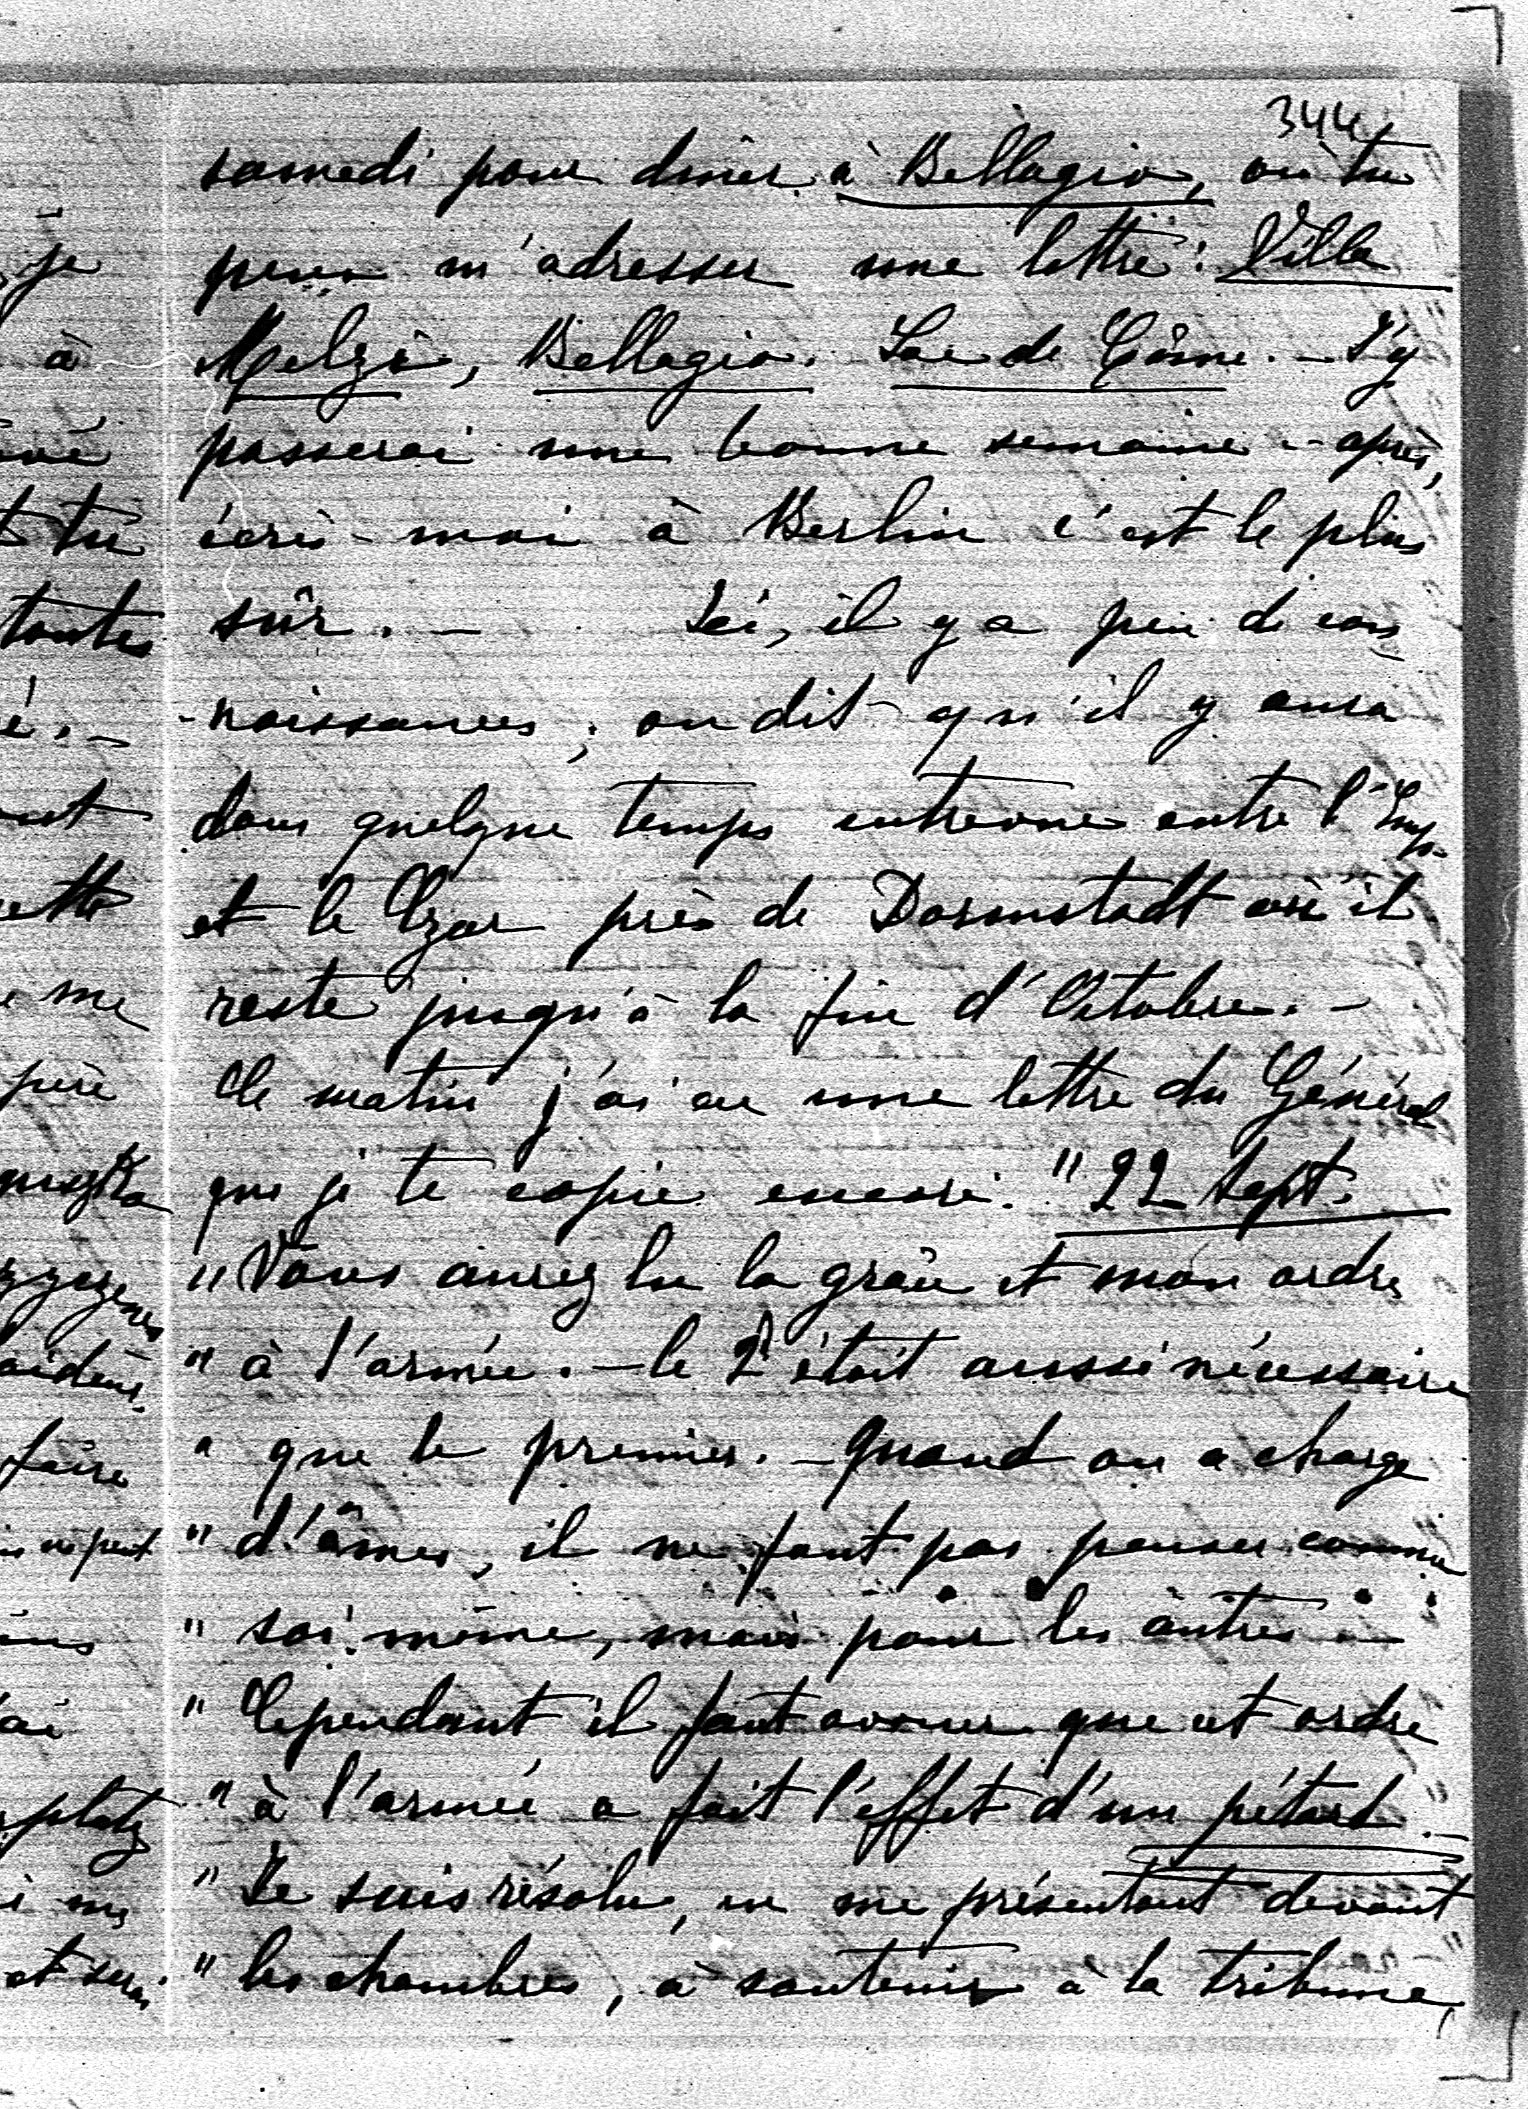 344
samedi pour dîner à Bellagio, où tu
peux m'adresser une lettre: Villa
Melzi, Bellagio. Lac de Côme. – J'y
passerai une bonne semaine – après,
écris-moi à Berlin c'est le plus
sûr. – Ici, il y a peu de con
-naissances; on dit qu'il y aura
dans quelque temps entrevue entre l'Emp.
et le Czar près de Darmstadt où il
reste jusqu'à la fin d'Octobre. –
Ce matin j'ai eu une lettre du Général
que je te copie encore. "22 Sept.
" Vous aurez lu la grâce et mon ordre
" à l'armée. – le 2d était aussi nécessaire
" que le premier. – Quand on a charge
" d'âmes, il ne faut pas penser comme
" soi-même, mais pour les autres –
" Cependant il faut avouer que cet ordre
" à l'armée a fait l'effet d'un pétard. –
" Je suis résolu, en me présentant devant
" les chambres, à soutenir à la tribune,
je
à
tu
toutes
me
père
faire